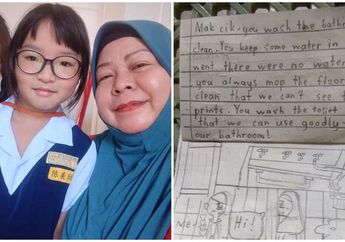 陈
Mak cik: you wash the bathr
clean. You keep some water in
went there were no water
you always mop the floor
clean that we can't see t
prints. You wash the toilet
that we can use goodly.
our bathroom!
Me
Hi!